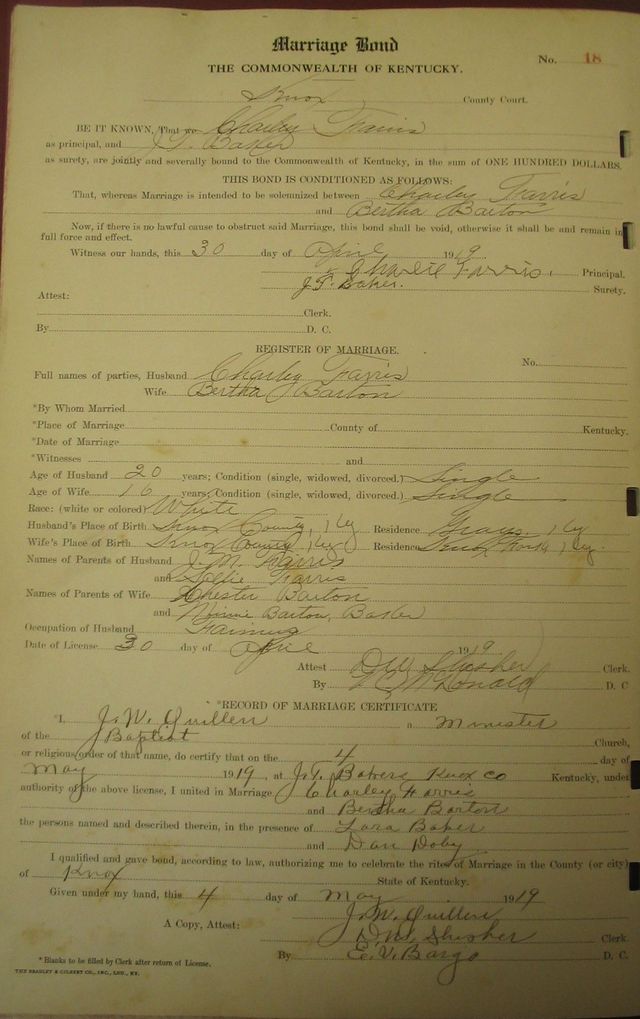 Marriage Bond
No. 18
THE COMMONWEALTH OF KENTUCKY.
Knox County Court.
BE IT KNOWN, That we Charley Farris
as principal, and J.T. Baker
as surety, are jointly and severally bound to the Commonwealth of Kentucky, in the sum of ONE HUNDRED DOLLARS.
THIS BOND IS CONDITIONED AS FOLLOWS:
That, whereas Marriage is intended to be solemnized between Charley Farris
and Bertha Barton
Now, if there is no lawful cause to obstruct said Marriage, this bond shall be void, otherwise it shall be and remain in
full force and effect.
Witness our hands, this 30 day of April 1919.
Charlie Farris. Principal.
J.T. Baker. Surety.
Attest:
Clerk.
By D. C.
REGISTER OF MARRIAGE.
No.
Full names of parties, Husband Charley Farris
Wife Bertha Barton
*By Whom Married
*Place of Marriage County of Kentucky.
*Date of Marriage
*Witnesses and
Age of Husband 20 years; Condition (single, widowed, divorced.) Single
Age of Wife 16 years; Condition (single, widowed, divorced.) Single
Race: (white or colored) White
Husband's Place of Birth Knox County, Ky Residence Grays, Ky
Wife's Place of Birth Knox County, Ky Residence Knox Ky.
Names of Parents of Husband J.M. Farris
and Sallie Farris
Names of Parents of Wife Chester Barton
and Minnie Barton, Baker
Occupation of Husband Farming
Date of License 30 day of April 1919
Attest D.M. Slusher Clerk.
By McDonald D. C
*RECORD OF MARRIAGE CERTIFICATE
*I, J.W. Quillen a Minister
of the Baptist Church,
or religious order of that name, do certify that on the 4 day of
May 1919, at J.T. Bakers Knox Co Kentucky, under
authority of the above license, I united in Marriage Charley Farris
and Bertha Barton
the persons named and described therein, in the presence of Lara Baker
and Dan Doby
I qualified and gave bond, according to law, authorizing me to celebrate the rites of Marriage in the County (or city)
of Knox State of Kentucky.
Given under my hand, this 4 day of May 1919
J.W. Quillen
A Copy, Attest: D.M. Slusher Clerk.
By E.V. Bargo D. C.
*Blanks to be filled by Clerk after return of License.
THE BRADLEY & GILBERT CO., INC., LOU., KY.